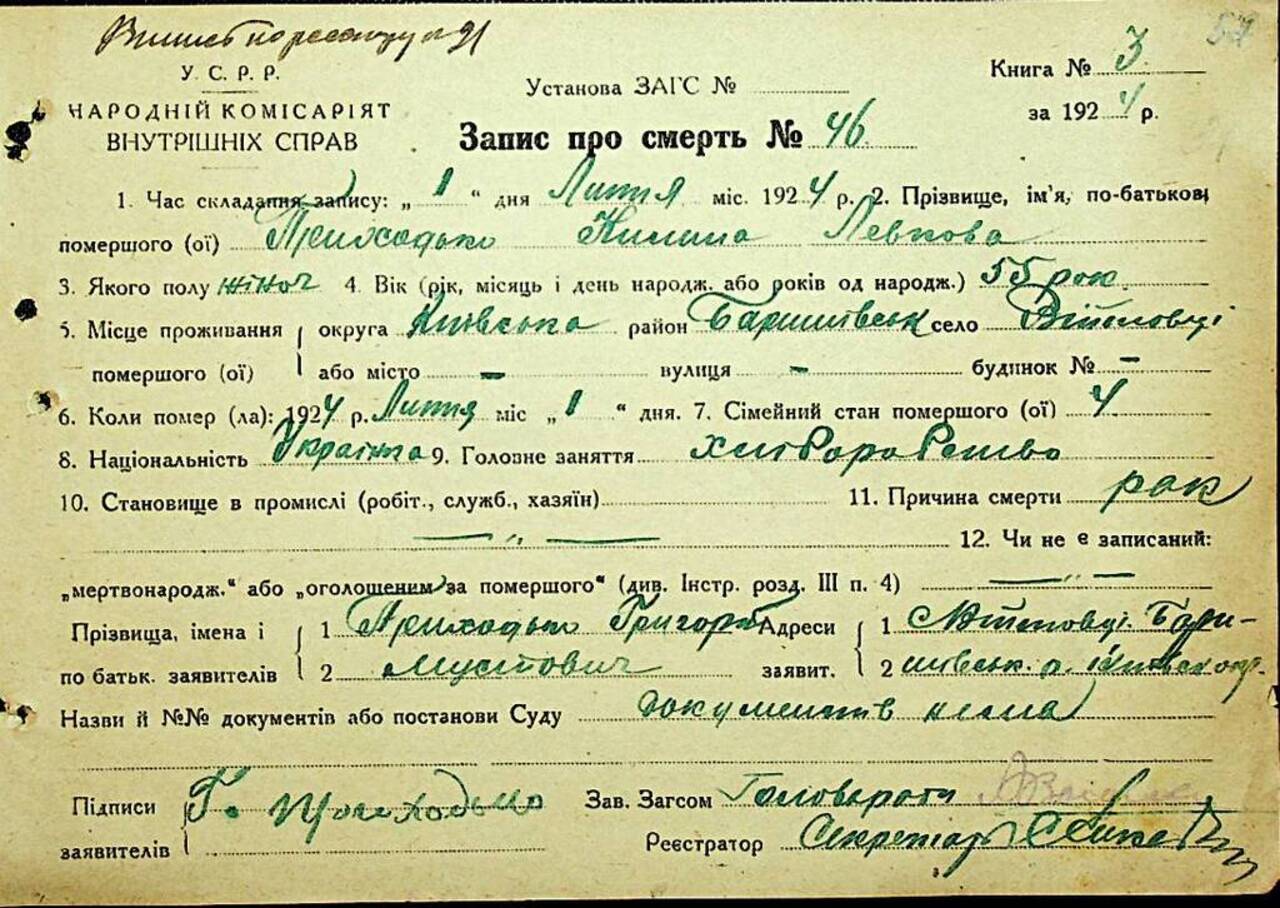 У. С. Р. Р.
НАРОДНІЙ КОМІСАРІЯТ
ВНУТРІШНІХ СПРАВ
Установа ЗАГС №
Книга № 3
за 1924 р.
Запис про смерть № 46
1. Час складання запису: „ 1 “ дня Лютня міс. 1924 р. 2. Прізвище, ім'я, по-батькові
помершого (ої) Приходько Килина Левкова
3. Якого полу жіноч 4. Вік (рік, місяць і день народж. або років од народж.) 55 рок.
5. Місце проживання округа Київська район Баришівськ село
помершого (ої) або місто – вулиця – будинок № –
6. Коли помер (ла): 1924 р. Лютня міс „ 1 “ дня. 7. Сімейний стан помершого (ої) 4
8. Національність Українка 9. Головне заняття хліборобство
10. Становище в промислі (робіт., служб., хазяїн) 11. Причина смерти рак
— „ — 12. Чи не є записаний:
„мертвонародж.“ або „оголошеним за помершого“ (див. Інстр. розд. III п. 4) — „ —
Прізвища, імена і 1 Приходько Григорій Адреси 1 Бари-
по батьк. заявителів 2 заявит. 2 шівськ. р. Київськ окр.
Назви й №№ документів або постанови Суду документів нема
Підписи Г. Приходько Зав. Загсом Голова
заявителів Реєстратор Секретар